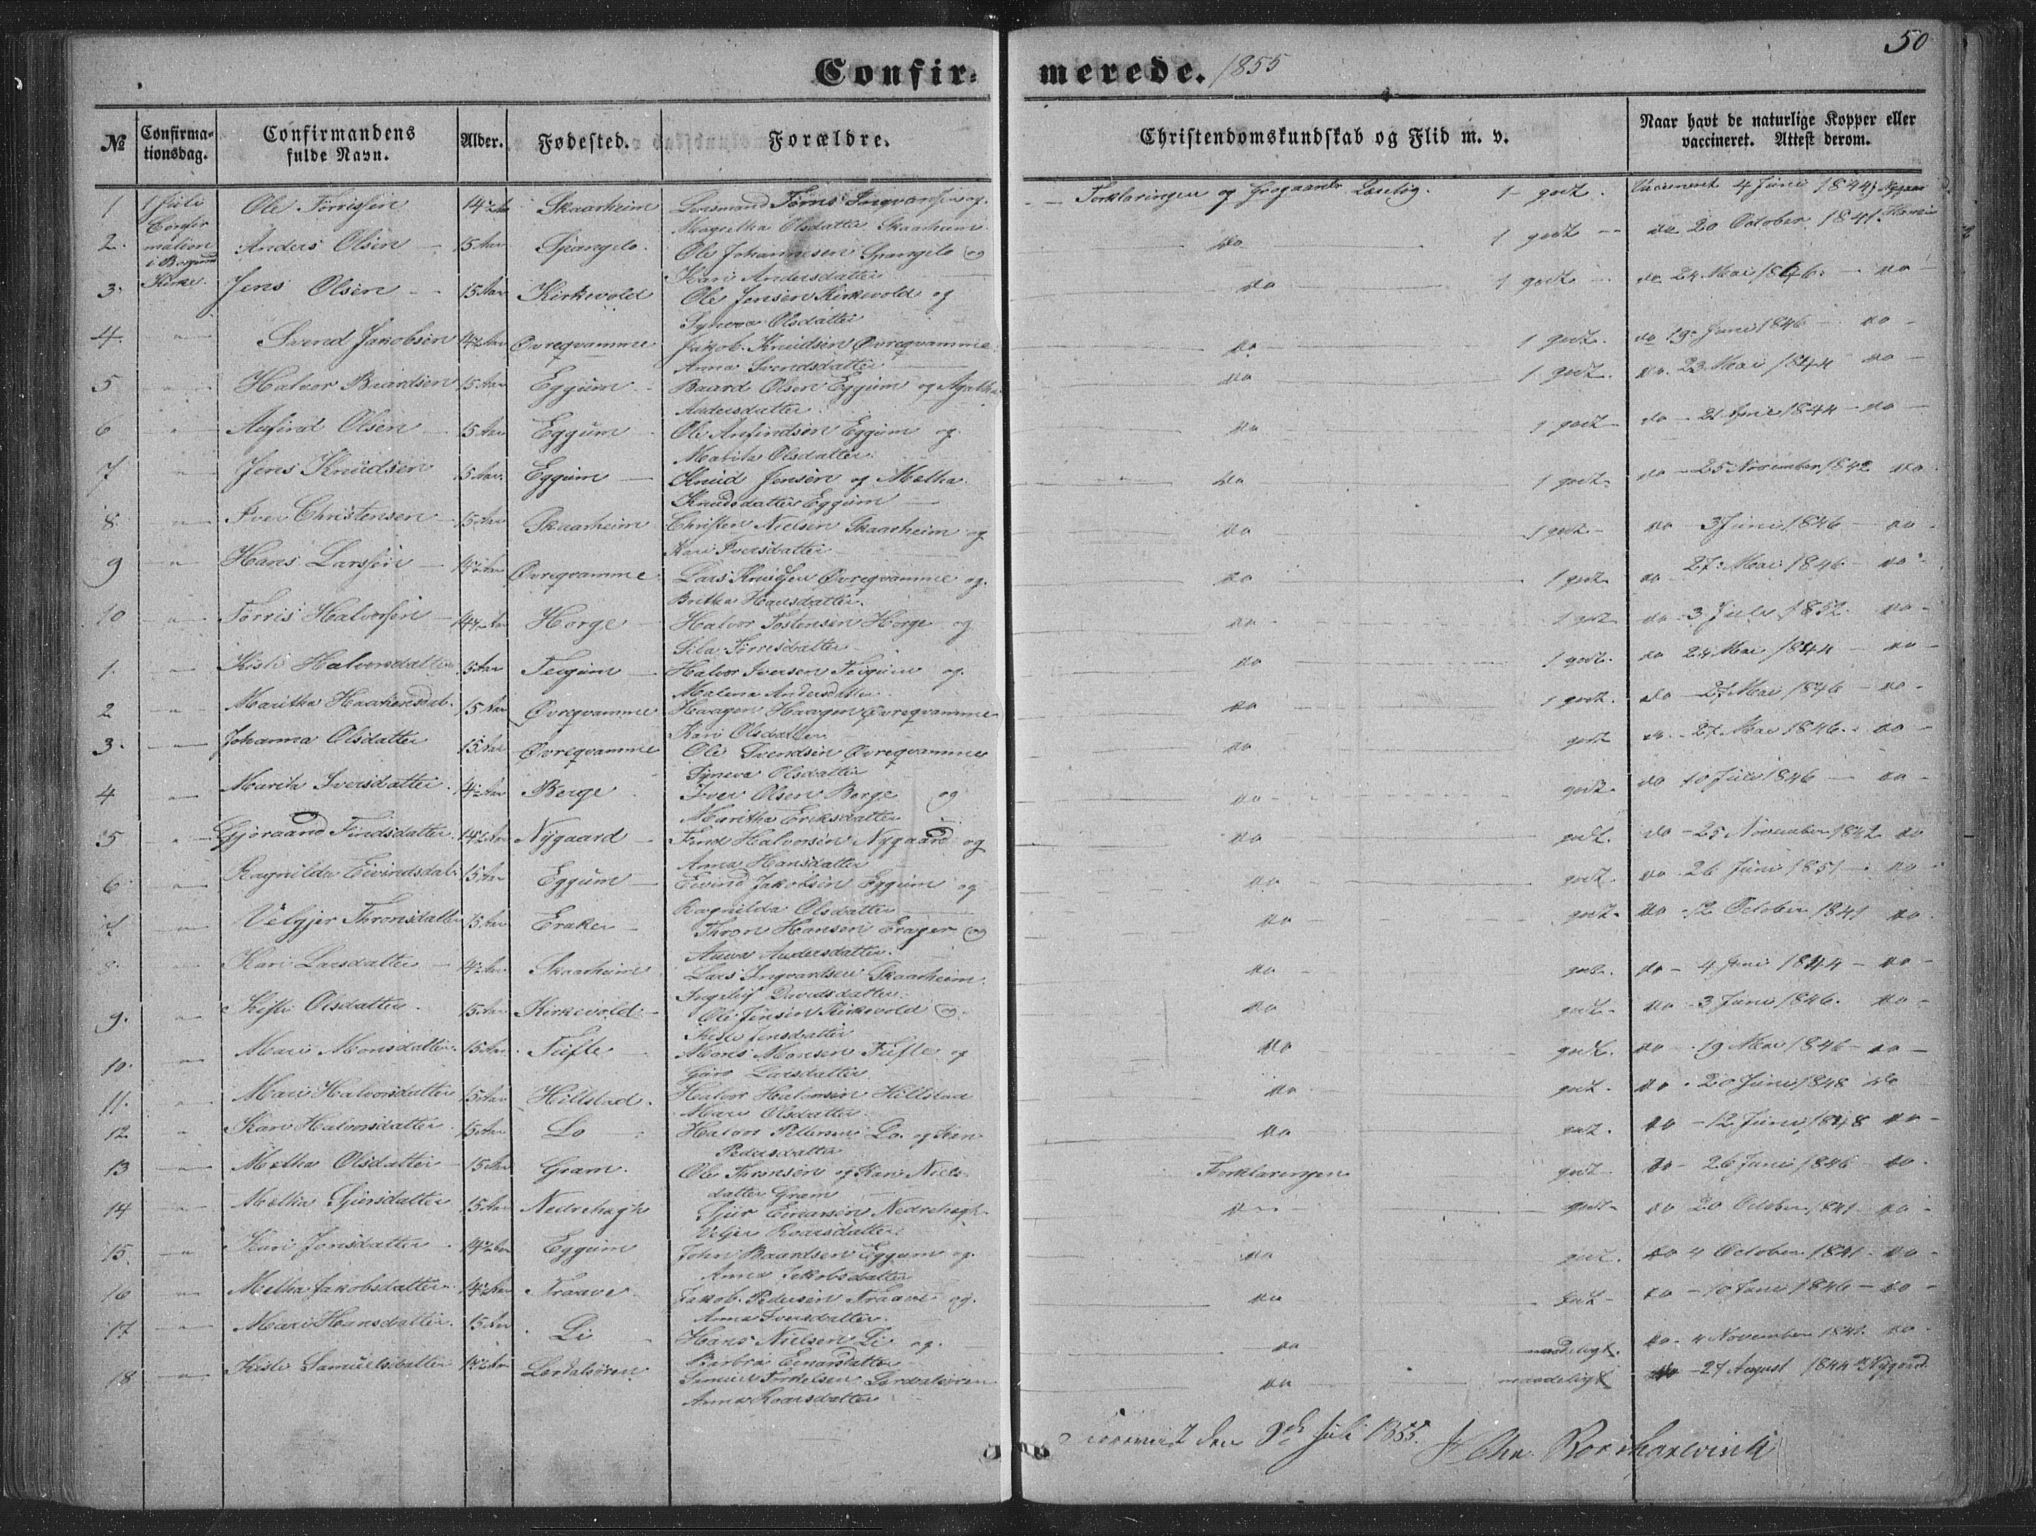 50
Confirmerede. 1855
№ Confirmationsdag. Confirmandens fulde Navn. Alder. Fødested. Forældre. Christendomskundskab og Flid m. v. Naar havt de naturlige Kopper eller vaccineret. Attest derom.
1 1 Juli Ole Tørrissen 14½ Aar Skaarheim Lensmand Tørris Ingvarssen og Forklaringen og Læsning. 1 godt. Vaccineret 4 Juni 1844
Confirmation i Borgund Kirke Magretha Olsdatter Skaarheim
2. Anders Olsen 15 Aar Spangelo. Ole Johannesen Spangelo og do 1 godt do 20 October 1841.
Kari Andersdatter
3. Jens Olsen 15 Aar Kirkevold Ole Jensen Kirkevold og do 1 godt do 24 Mai 1846. do
Synneva Olsdatter
4 Svend Jakobsen 14½ Aar Øvreqvamme Jakob Knudsen Øvreqvamme do 1 godt. do 19 Juni 1846 do
Anna Svendsdatter
5 Halvor Baardsen 15 Aar Eggum Baard Olsen Eggum og Agatha do 1 godt. do 23 Mai 1844 do
Andersdatter
6 Anfind Olsen 15 Aar Eggum Ole Anfindsen Eggum og do 1 godt do 21 Juni 1844 do
Maritha Olsdatter
7 Jens Knudsen 15 Aar. Eggum Knud Jensen og Metha do 1 godt. do 25 November 1842 do
Knudsdatter Eggum
8 Iver Christensen 15 Aar Skaarheim Christen Nielsen Skaarheim og do 1 godt do 3 Juni 1846 do
Kari Iversdatter
9 Hans Larssen 14½ Aar Øvreqvamme Lars Knudsen Øvreqvamme og do 1 godt do 27 Mai 1846 do
Britha Hansdatter.
10 Tørris Halvorsen 14½ Aar Horge Halvor Tostensen Horge og do 1 godt do 3 Juli 1852. do
Sila Tørrisdatter
1. Kisti Halvorsdatter 15 Aar Teigum Halvor Iversen Teigum og do 1 godt. do 24 Mai 1844 do
Malena Andersdatter
2 Maritha Haakensdat. 15 Aar Øvreqvamme Haagen Haagen Øvreqvamme do 1 godt. do 27 Mai 1846 do
Kari Olsdatter
3. Johanna Olsdatter 15 Aar Øvreqvamme Ole Svendsen Øvreqvamme do godt do 27 Mai 1846. do
Synneva Olsdatter
4 Marith Iversdatter 14½ Aar Berge Iver Olsen Berge og do godt. do 10 Juli 1846 do
Maritha Eriksdatter
5 Gjøraand Findsdatter 14½ Aar Nygaard Find Halvorsen Nygaard og do godt. do 25 November 1842 do
Anna Hansdatter
6. Ragnilda Eivindsdat. 15 Aar Eggum Eivind Jakobsen Eggum og do godt. do 26 Juni 1851 do
Ragnilda Olsdatter
7. Velgjer Thronsdatter 15 Aar Eraker Thron Hansen Erager og do godt. do 12 October 1841 do
Anna Andersdatter.
8. Kari Larsdatter 14½ Aar Skaarheim Lars Ingvardsen Skaarheim do godt. do 4 Juni 1844 do
Ingeleif Davidsdatter.
9. Kisti Olsdatter. 15 Aar Kirkevold Ole Jensen Kirkevold og do godt. do 3 Juni 1846. do
Kisti Jensdatter
10. Mari Monsdatter 15 Aar Tufte Mons Monsen Tufte og do godt. do 19 Mai 1846 do
Guro Larsdatter
11. Mari Halvorsdatter 15 Aar Hillstad. Halvor Halvorsen Hillstad do godt. do 20 Juni 1848 do
Mari Olsdatter
12 Kari Halvorsdatter 15 Aar Lo Halvor Pettersen Lo og do godt. do 12 Juni 1848 do
Pedersdatter
13 Metha Olsdatter 15 Aar Gram. Ole Thronsen og Kari Niels- Forklaringen godt. do 26 Juni 1846 do
datter Gram
14 Metha Sjursdatter 15 Aar Nedrehegh Sjur Einarsen Nedrehegh do godt do 20 October 1841 do
Velgjer Roarsdatter
15 Kari Jonsdatter 14½ Aar Eggum John Baardsen Eggum og do godt. do 4 October 1841 do
Anna Jakobsdatter
16 Metha Jakobsdatter 14½ Aar Nraave Jakob Pedersen Nraave og do godt do 10 Juni 1846 do
Anna Iversdatter.
17 Mari Hansdatter 15 Aar Li Hans Nielsen Li og do maadeligt. do 4 November 1841. do
Barbra Einarsdatter
18 Kisti Samuelsdatter 14½ Aar Lærdalsøren Samuel Torkelsen Lærdalsøren do maadeligt do 27 August 1844 Nygaard
Anna Roarsdatter
den Juli 1855.